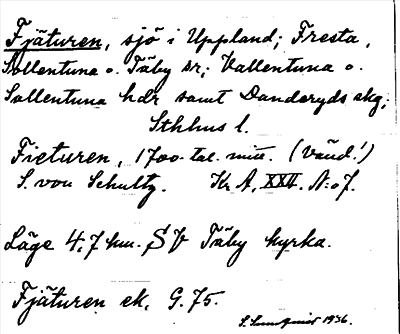 Fjäturen, sjö i Uppland; Fresta,
Sollentuna o. Täby sr; Vallentuna o.
Sollentuna hdr samt Danderyds skg;
Sthlms l.
Fieturen, 1700-tal. mitt. (Vänd!)
S. von Schultz. Kr A, XXV. N:o 7.
Läge 4,7 km. SV Täby kyrka.
Fjäturen ek. G. 75.
1936.